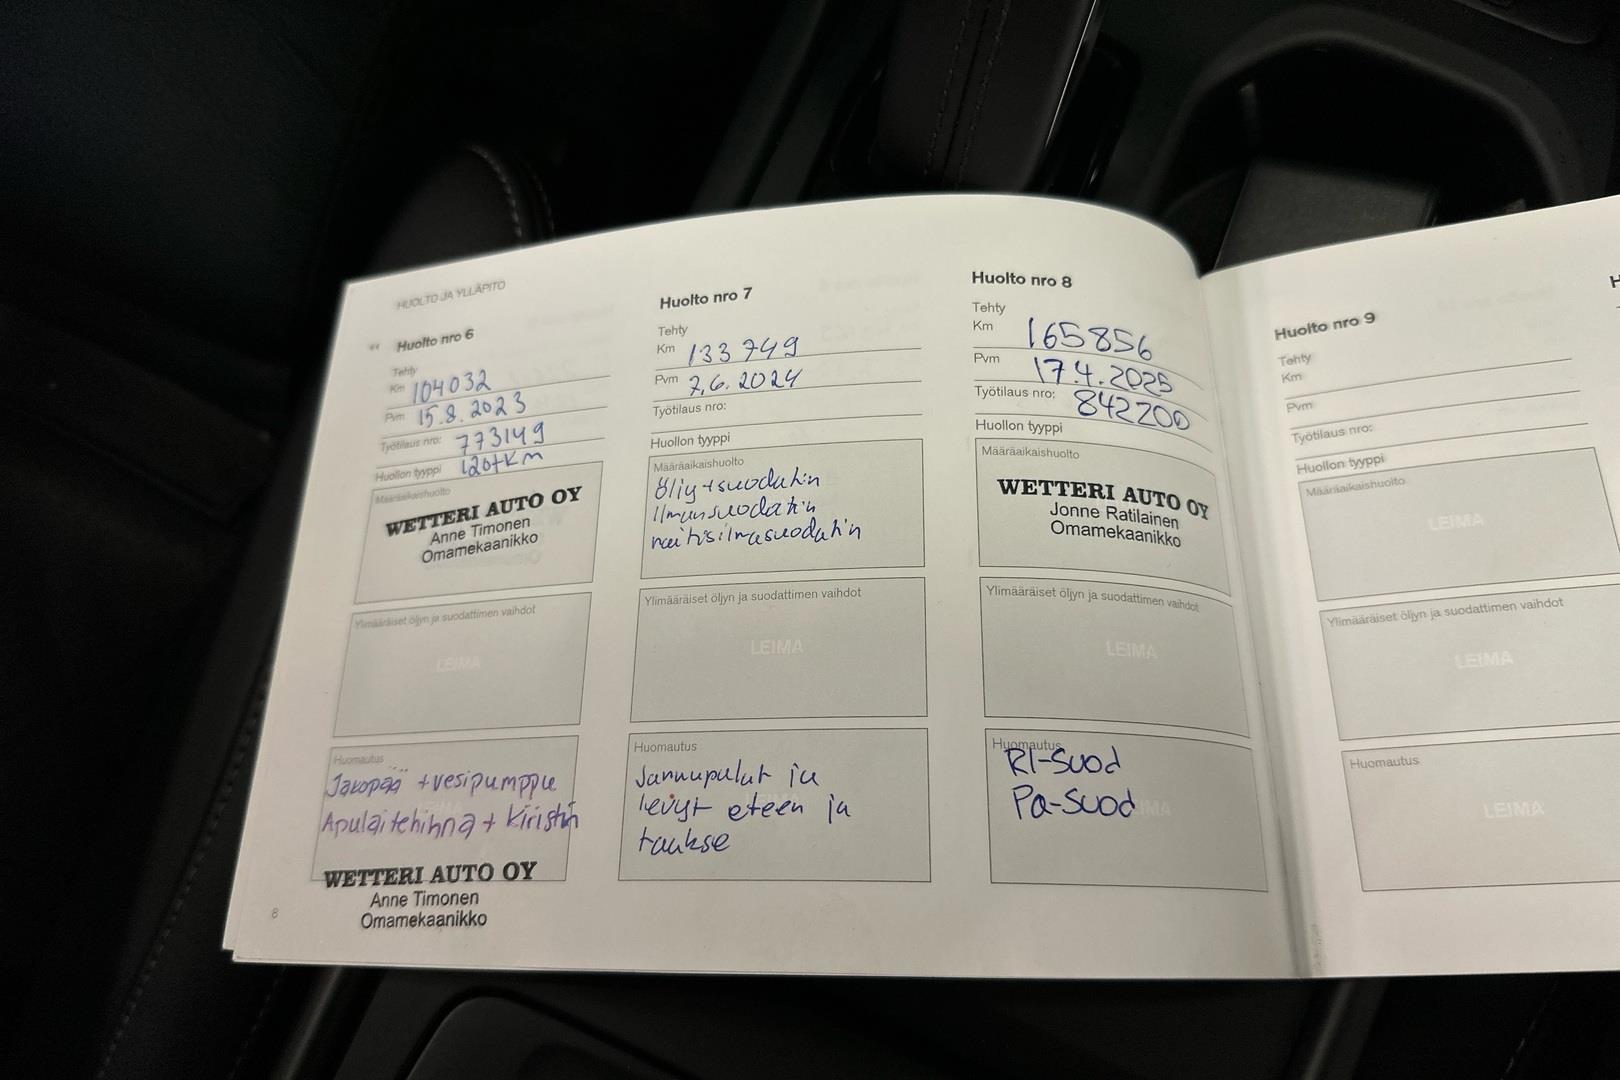 HUOLTO JA YLLÄPITO
Huolto nro 6
Tehty
Km 104032
Pvm 15.8.2023
Työtilaus nro: 773149
Huollon tyyppi 120tkm
Määräaikaishuolto
WETTERI AUTO OY
Anne Timonen
Omamekaanikko
Ylimääräiset öljyn ja suodattimen vaihdot
LEIMA
Huomautus
Jakopää + vesipumppu
Apulaitehihna + kiristin
WETTERI AUTO OY
Anne Timonen
Omamekaanikko
8
Huolto nro 7
Tehty
Km 133749
Pvm 7.6.2024
Työtilaus nro:
Huollon tyyppi
Määräaikaishuolto
öljy+suodatin
ilmansuodatin
raitisilmasuodatin
Ylimääräiset öljyn ja suodattimen vaihdot
LEIMA
Huomautus
Jarrupalat ja
levyt eteen ja
taakse
Huolto nro 8
Tehty
Km 165856
Pvm 17.4.2025
Työtilaus nro: 842200
Huollon tyyppi
Määräaikaishuolto
WETTERI AUTO OY
Jonne Ratilainen
Omamekaanikko
Ylimääräiset öljyn ja suodattimen vaihdot
LEIMA
Huomautus
RI-suod
Pa-suod
Huolto nro 9
Tehty
Km
Pvm
Työtilaus nro:
Huollon tyyppi
Määräaikaishuolto
LEIMA
Ylimääräiset öljyn ja suodattimen vaihdot
LEIMA
Huomautus
LEIMA